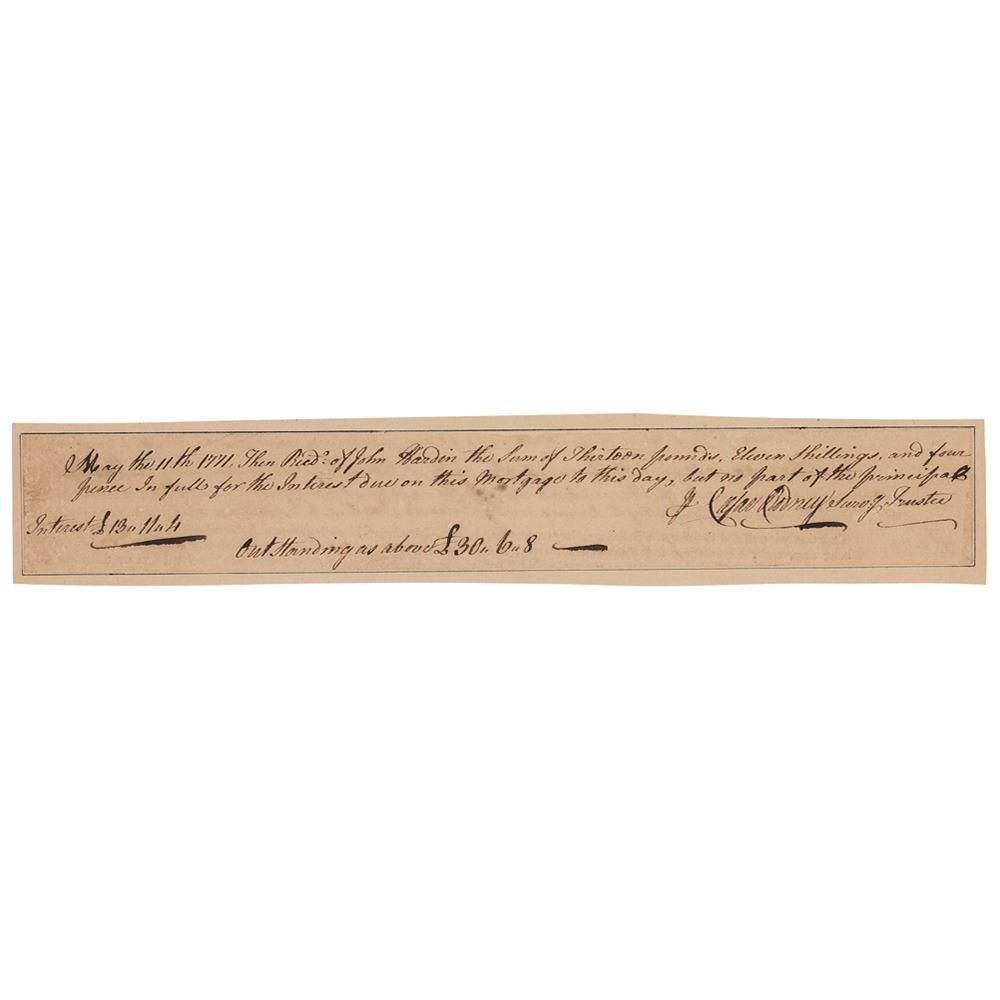 May the 11th 1771. Then Recd: of John Hardin the Sum of Thirteen pounds, Eleven Shillings, and four
pence In full for the Interest due on this Mortgage to this day, but no part of the principal
Caesar Rodney Survg. Trustee
Interest £13〃11〃4
Outstanding as above £30〃6〃8